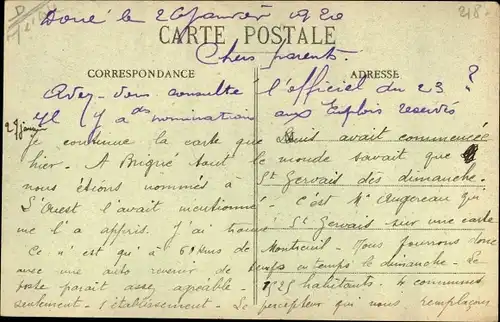 Doué le 26 Janvier 1920
218
CARTE POSTALE
Chers parents.
CORRESPONDANCE
ADRESSE
Avez-vous consulté l'officiel du 23 ?
Il y a des nomination aux Emplois reservés
27 janvier
Je continue la carte que Louis avait commencée
hier. A Brigné tout le monde savait que
nous étions nommés à St Gervais dès dimanche.
L'Ouest l'avait mentionné. C'est Mr Augereau qui
me l'a appris. J'ai trouvé St Gervais sur une carte
Ce n'est qu'à 6 kms de Montreuil. Nous pourrons donc
avec une auto revenir de temps en temps le dimanche. Le
poste parait assez agréable. 1525 habitants. 4 communes
seulement. L'établissement. Le percepteur que nous remplaçons